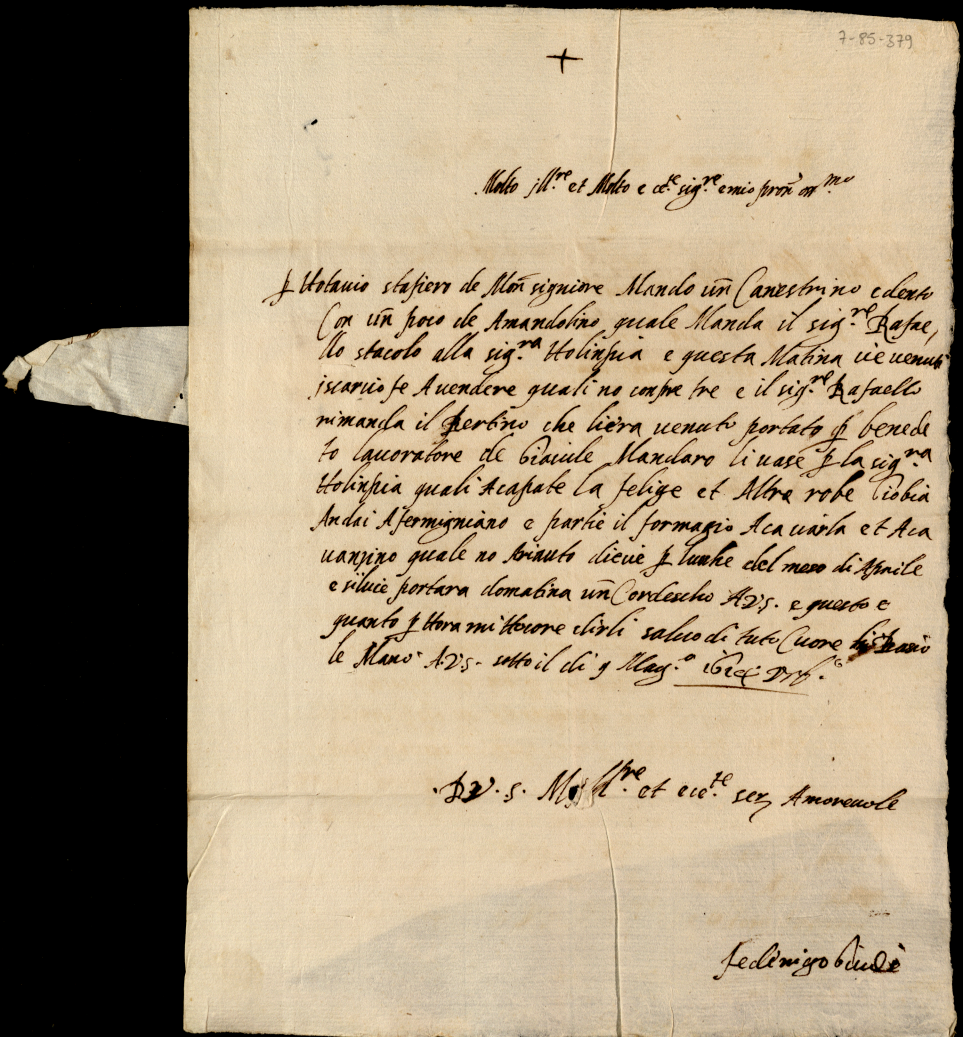 7-85-379
+
Molto jll.re et Molto e ce.te sig.re e mio pron̄ on.mo
p Hotavio stafiero de Mon̄ signiore Mando un̄ Canestrino e dento
Con un̄ poco de Amandolino quale Manda il sig.re Rafae,
llo stacolo alla sig.ra Holinpia e questa Matina vie venuti
iscarciofe A vendere quali no conpre tre e il sig.re Rafaello
rimanda il che liera venuto portato p benede
to lavoratore de Mandaro li vase p la sig.ra
Holinpia quali Acapate la felige et Altre robe Giobia
Andai A fermigniano e partie il formagio A ca varla et A ca
vanzino quale no dieve p lunhe del meso di Aprile
e silvie portara domatina un̄ Cordescho A.V.S. e questo e
quanto p Hora mi Hocore dirli saluo di tuto Cuore
le Mano A.V.S. sotto il di 9 Mag.o
D.V.S. M ll.re et ece.te ser Amorevole
federigo